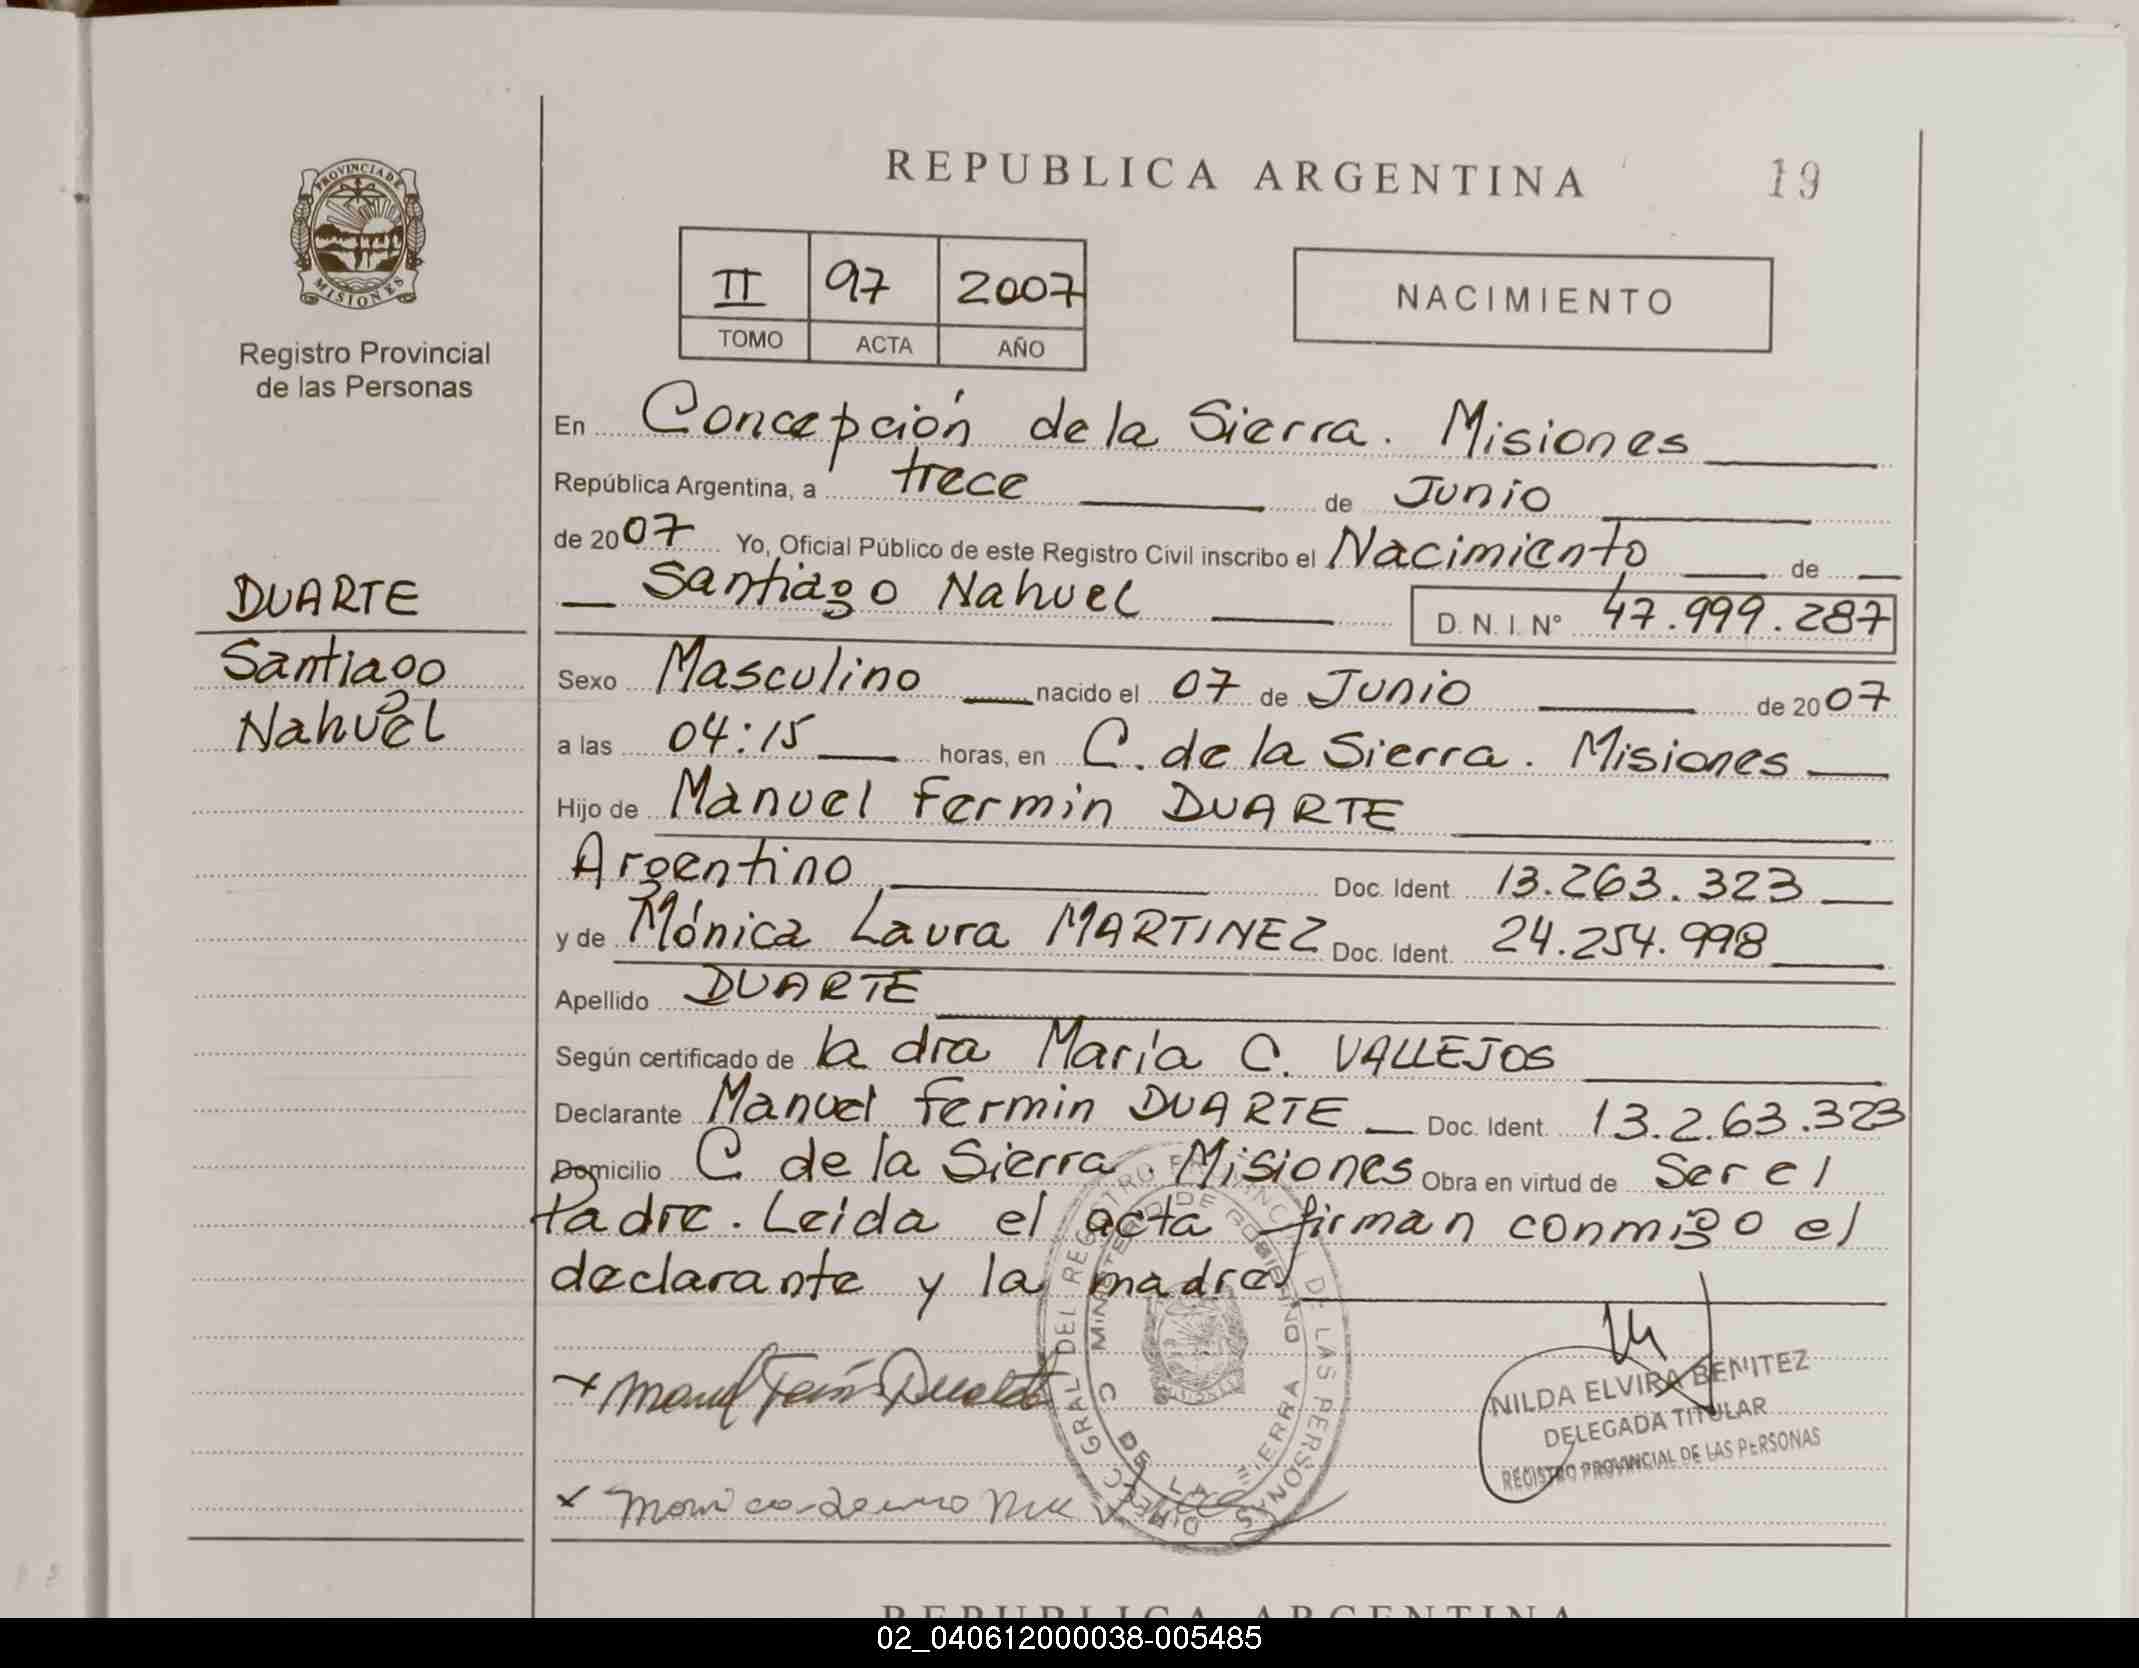 REPUBLICA ARGENTINA
19
PROVINCIA DE MISIONES
Registro Provincial
de las Personas
II 97 2007
TOMO ACTA AÑO
NACIMIENTO
En Concepción de la Sierra. Misiones
República Argentina, a trece de Junio
de 2007 Yo, Oficial Público de este Registro Civil inscribo el Nacimiento de
Santiago Nahuel D. N. I. N° 47.999.287
DUARTE
Santiago
Nahuel
Sexo Masculino nacido el 07 de Junio de 2007
a las 04:15 horas, en C. de la Sierra. Misiones
Hijo de Manuel Fermin DUARTE
Argentino Doc. Ident. 13.263.323
y de Mónica Laura MARTINEZ Doc. Ident. 24.254.998
Apellido DUARTE
Según certificado de la dra María C. VALLEJOS
Declarante Manuel Fermin DUARTE Doc. Ident. 13.263.323
Domicilio C. de la Sierra. Misiones Obra en virtud de Ser el
Padre. Leida el acta firman conmigo el
declarante y la madre
DIREC. GRAL DEL REGISTRO PROVINCIAL DE LAS PERSONAS
MINISTERIO DE GOBIERNO
C DE LA SIERRA
NILDA ELVIRA BENITEZ
DELEGADA TITULAR
REGISTRO PROVINCIAL DE LAS PERSONAS
REPUBLICA ARGENTINA
02_040612000038-005485